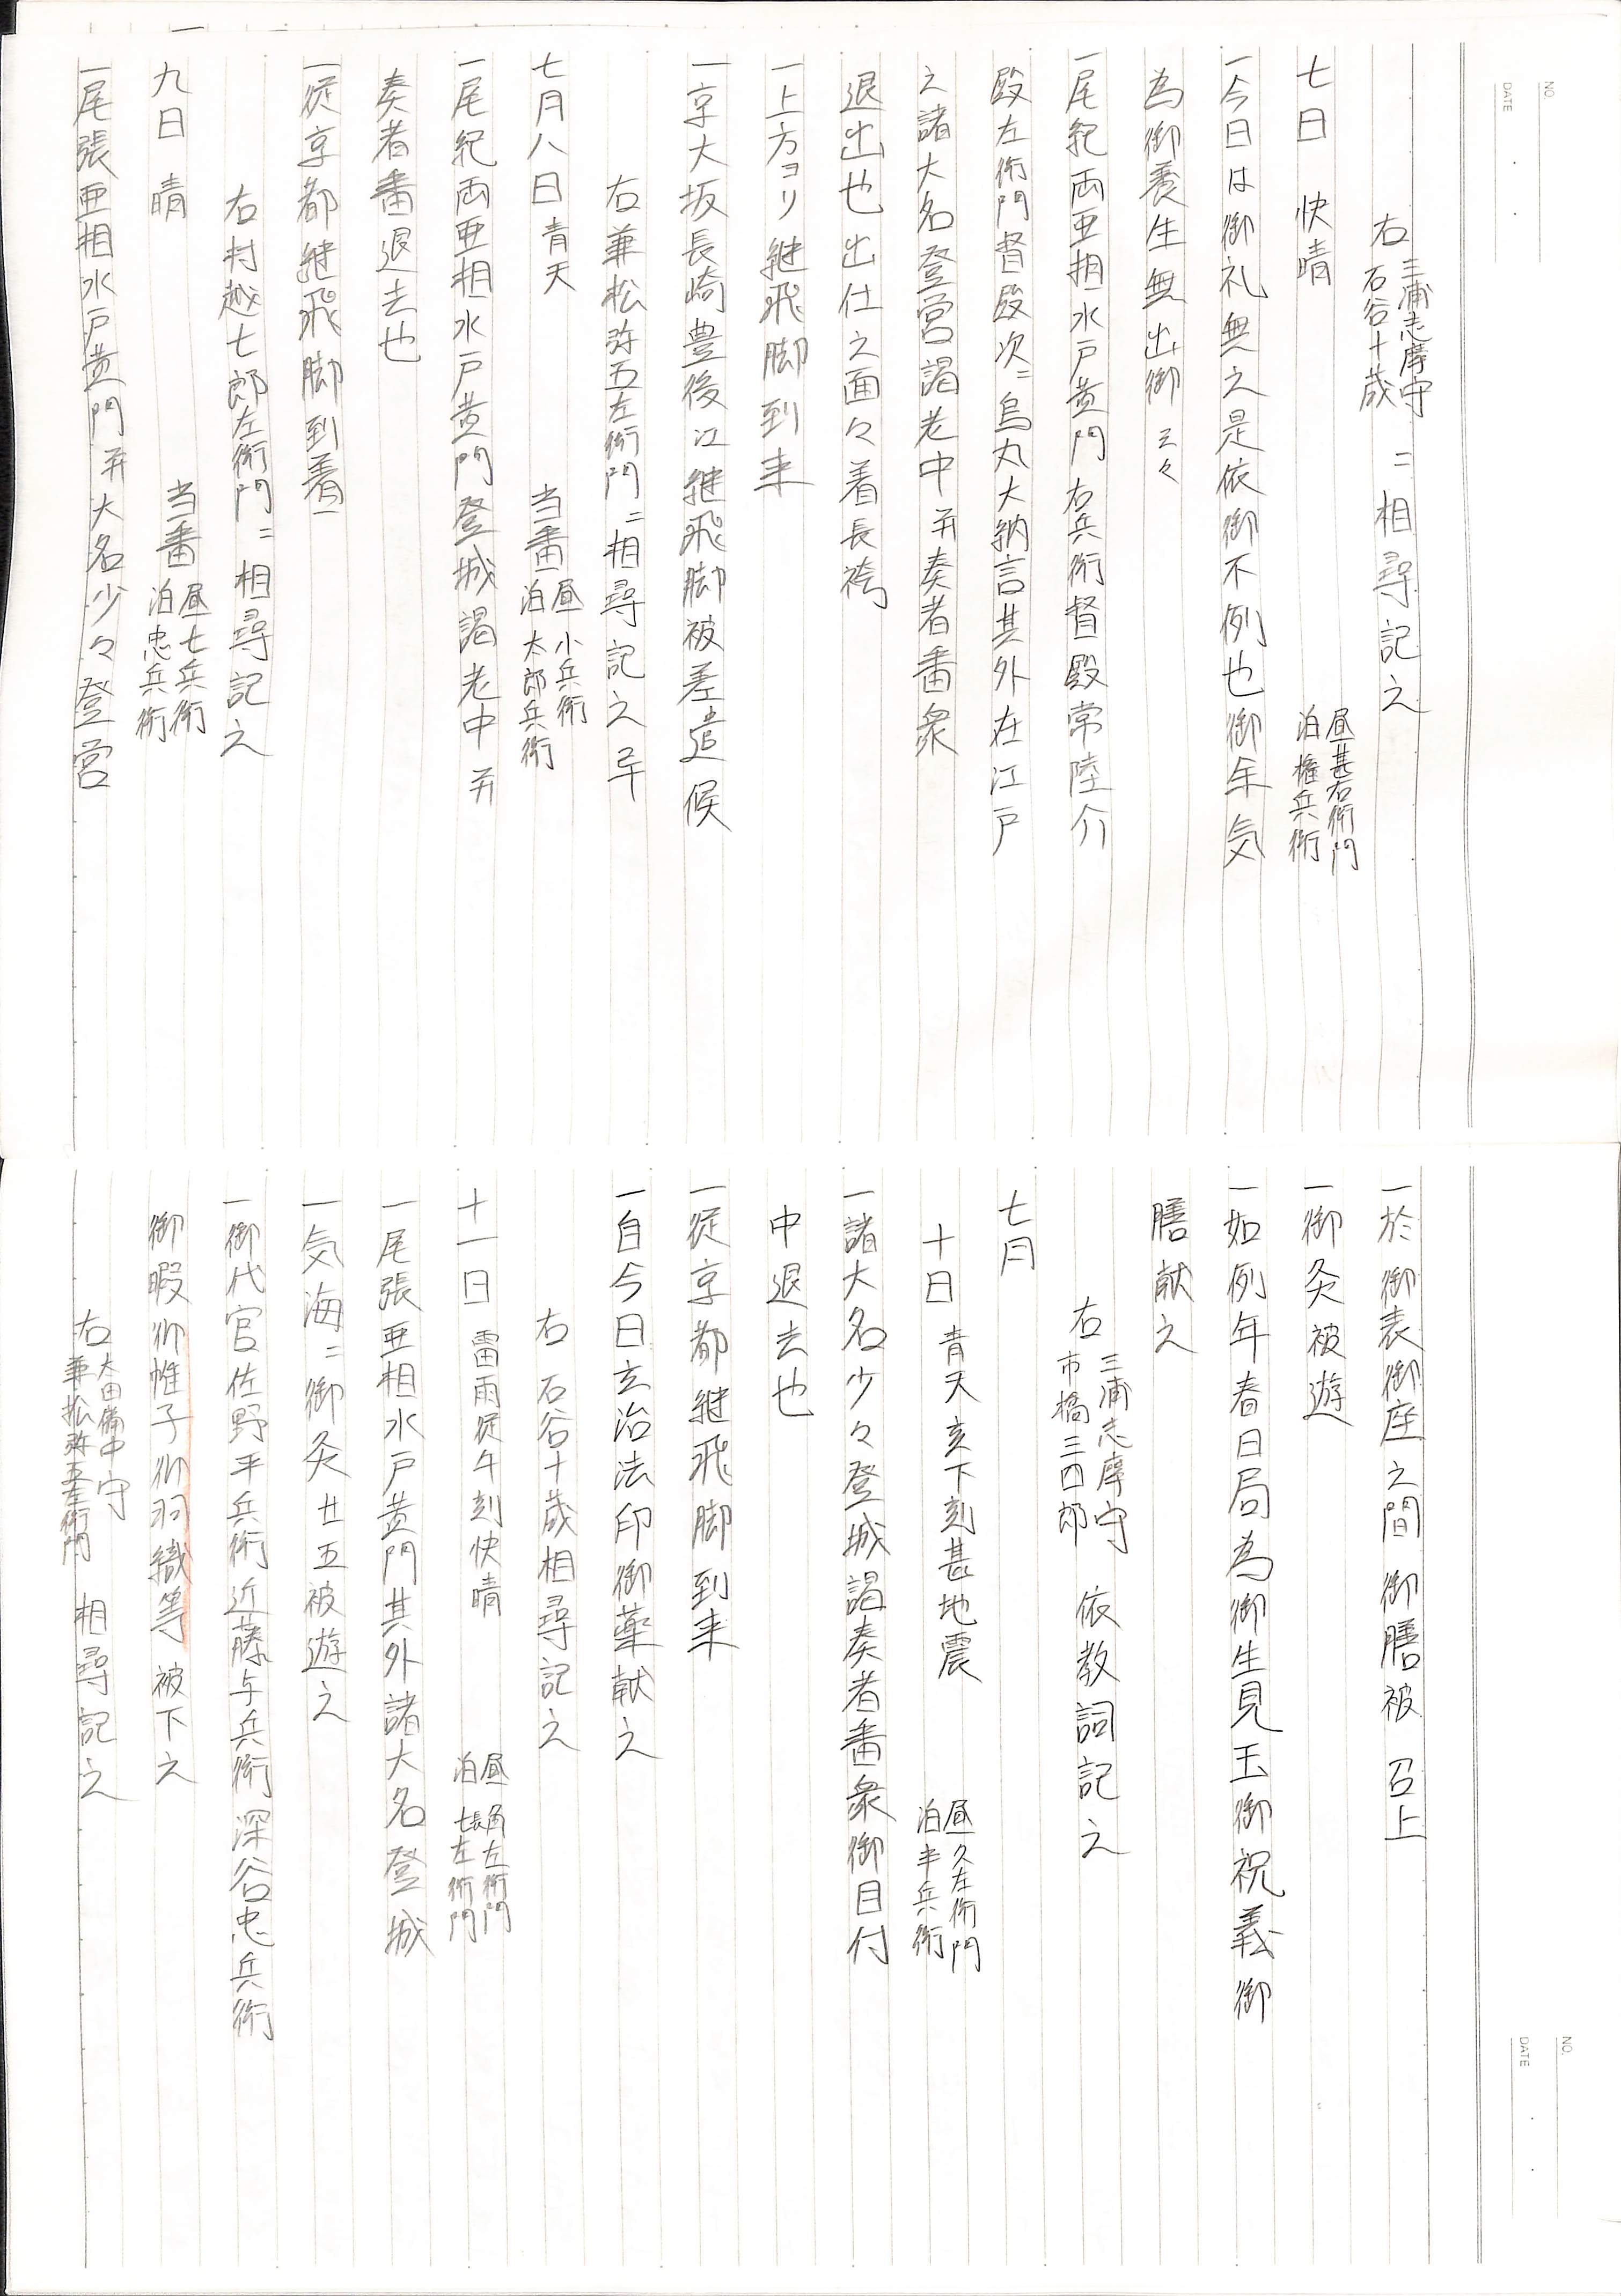 NO.
DATE
右 三浦志摩守 石谷十蔵 ニ相尋記之
七日 快晴 昼甚右衛門 泊権兵衛
一今日は御礼無之是依御不例也御年気
為御養生無出御云々
一尾紀両亜相水戸黄門右兵衛督殿常陸介
殿左衛門督殿次ニ烏丸大納言其外在江戸
之諸大名登営謁老中并奏者番衆
退出也出仕之面々着長袴
一上方ヨリ継飛脚到来
一京大坂長崎豊後江継飛脚被差遣候
右兼松弥五左衛門ニ相尋記之
七月八日 青天 当番 昼小兵衛 泊太郎兵衛
一尾紀両亜相水戸黄門登城謁老中并
奏者番退去也
一従京都継飛脚到着
右村越七郎左衛門ニ相尋記之
九日 晴 当番 昼七兵衛 泊忠兵衛
一尾張亜相水戸黄門并大名少々登営
NO.
DATE
一於御表御座之間御膳被召上
一御灸被遊
一如例年春日局為御生見玉御祝義御
膳献之
右 三浦志摩守 市橋三四郎 依教詞記之
七月
十日 青天亥下刻甚地震 昼久左衛門 泊半兵衛
一諸大名少々登城謁奏者番衆御目付
中退去也
一従京都継飛脚到来
一自今日玄治法印御薬献之
右 石谷十蔵相尋記之
十一日 雷雨従午刻快晴 昼角左衛門 泊七左衛門
一尾張亜相水戸黄門其外諸大名登城
一気海ニ御灸廿五被遊之
一御代官佐野平兵衛近藤与兵衛深谷忠兵衛
御暇御帷子御羽織等被下之
右 太田備中守 兼松弥五左衛門 相尋記之